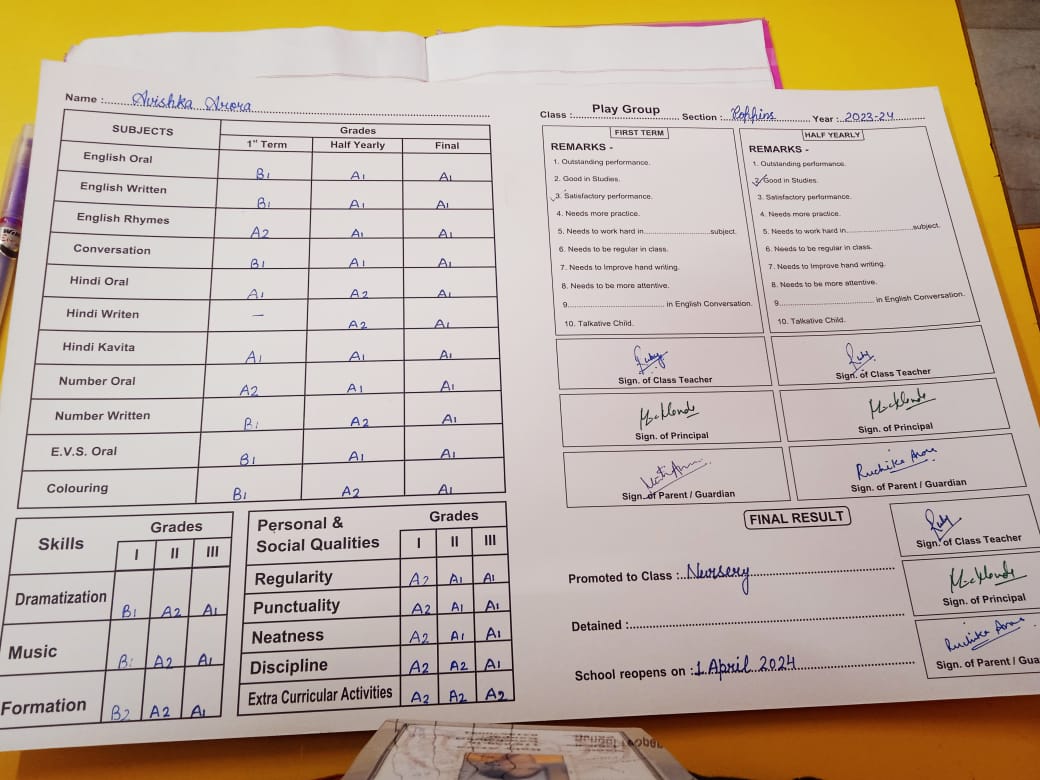 Name : Avishka Arora
SUBJECTS Grades
1st Term Half Yearly Final
English Oral B1 A1 A1
English Written B1 A1 A1
English Rhymes A2 A1 A1
Conversation B1 A1 A1
Hindi Oral A1 A2 A1
Hindi Writen — A2 A1
Hindi Kavita A1 A1 A1
Number Oral A2 A1 A1
Number Written B1 A2 A1
E.V.S. Oral B1 A1 A1
Colouring B1 A2 A1
Skills Grades
I II III
Dramatization B1 A2 A1
Music B1 A2 A1
Formation B2 A2 A1
Personal & Social Qualities Grades
I II III
Regularity A2 A1 A1
Punctuality A2 A1 A1
Neatness A2 A1 A1
Discipline A2 A2 A1
Extra Curricular Activities A2 A2 A2
Class : Play Group Section : Poppins Year : 2023-24
FIRST TERM
REMARKS -
1. Outstanding performance.
2. Good in Studies.
3. Satisfactory performance.
4. Needs more practice.
5. Needs to work hard in.............................subject.
6. Needs to be regular in class.
7. Needs to Improve hand writing.
8. Needs to be more attentive.
9.............................. in English Conversation.
10. Talkative Child.
Sign. of Class Teacher
Sign. of Principal
Sign. of Parent / Guardian
HALF YEARLY
REMARKS -
1. Outstanding performance.
2. Good in Studies.
3. Satisfactory performance.
4. Needs more practice.
5. Needs to work hard in.............................subject.
6. Needs to be regular in class.
7. Needs to Improve hand writing.
8. Needs to be more attentive.
9.............................. in English Conversation.
10. Talkative Child.
Ruby
Sign. of Class Teacher
Sign. of Principal
Ruchika Arora
Sign. of Parent / Guardian
FINAL RESULT
Promoted to Class : Nursery
Detained :
School reopens on : 1 April 2024
Ruby
Sign. of Class Teacher
Sign. of Principal
Ruchika Arora
Sign. of Parent / Gua